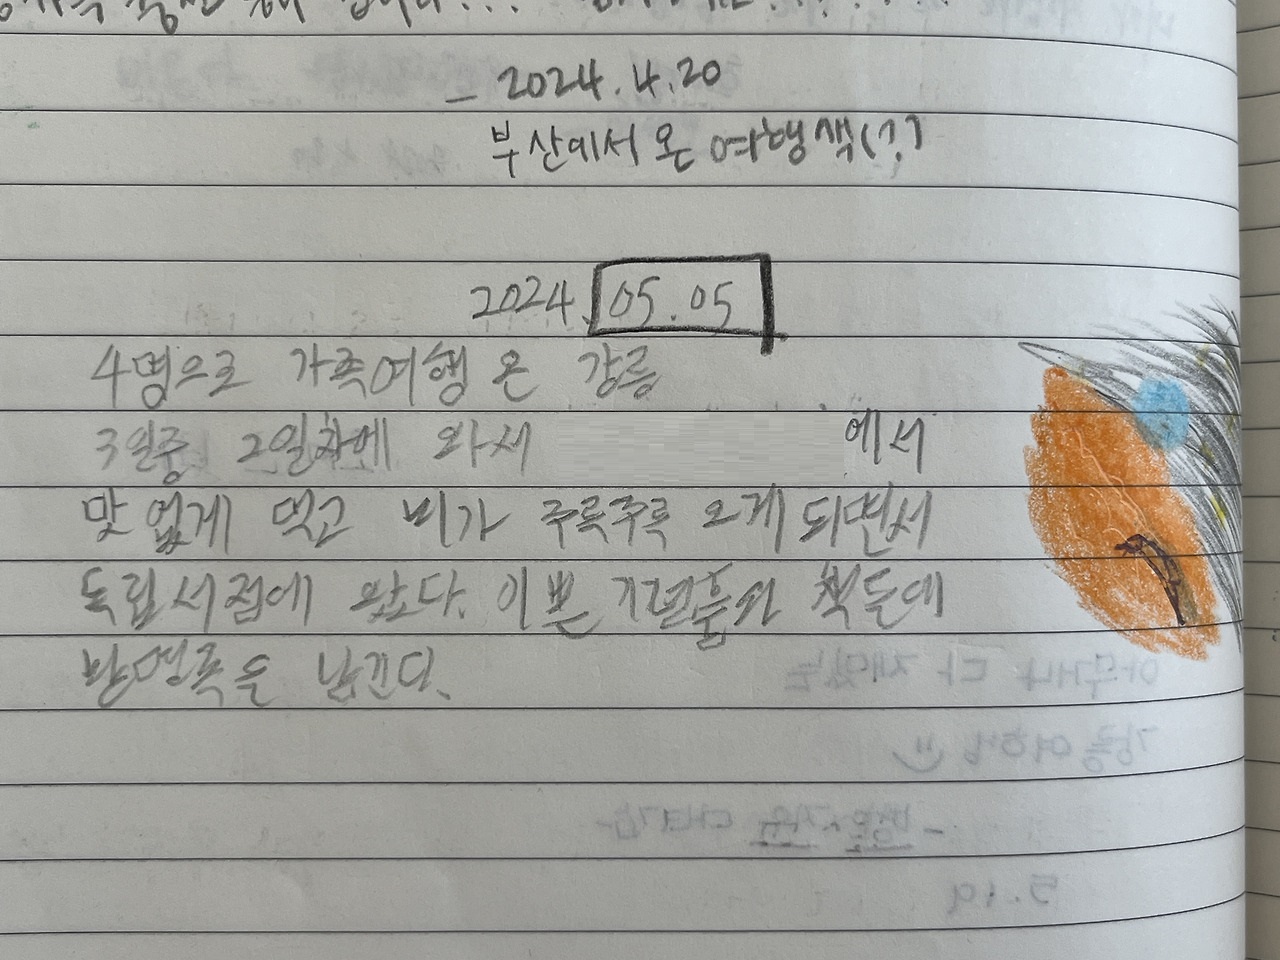 - 2024.4.20
부산에서 온 여행색(?)
2024. 05.05
4명으로 가족여행 온 강릉
3일중 2일차에 와서 에서
맛 없게 먹고 비가 주륵주륵 오게 되면서
독립서점에 왔다. 이쁜 기념품과 책들에
방명록을 남긴다.